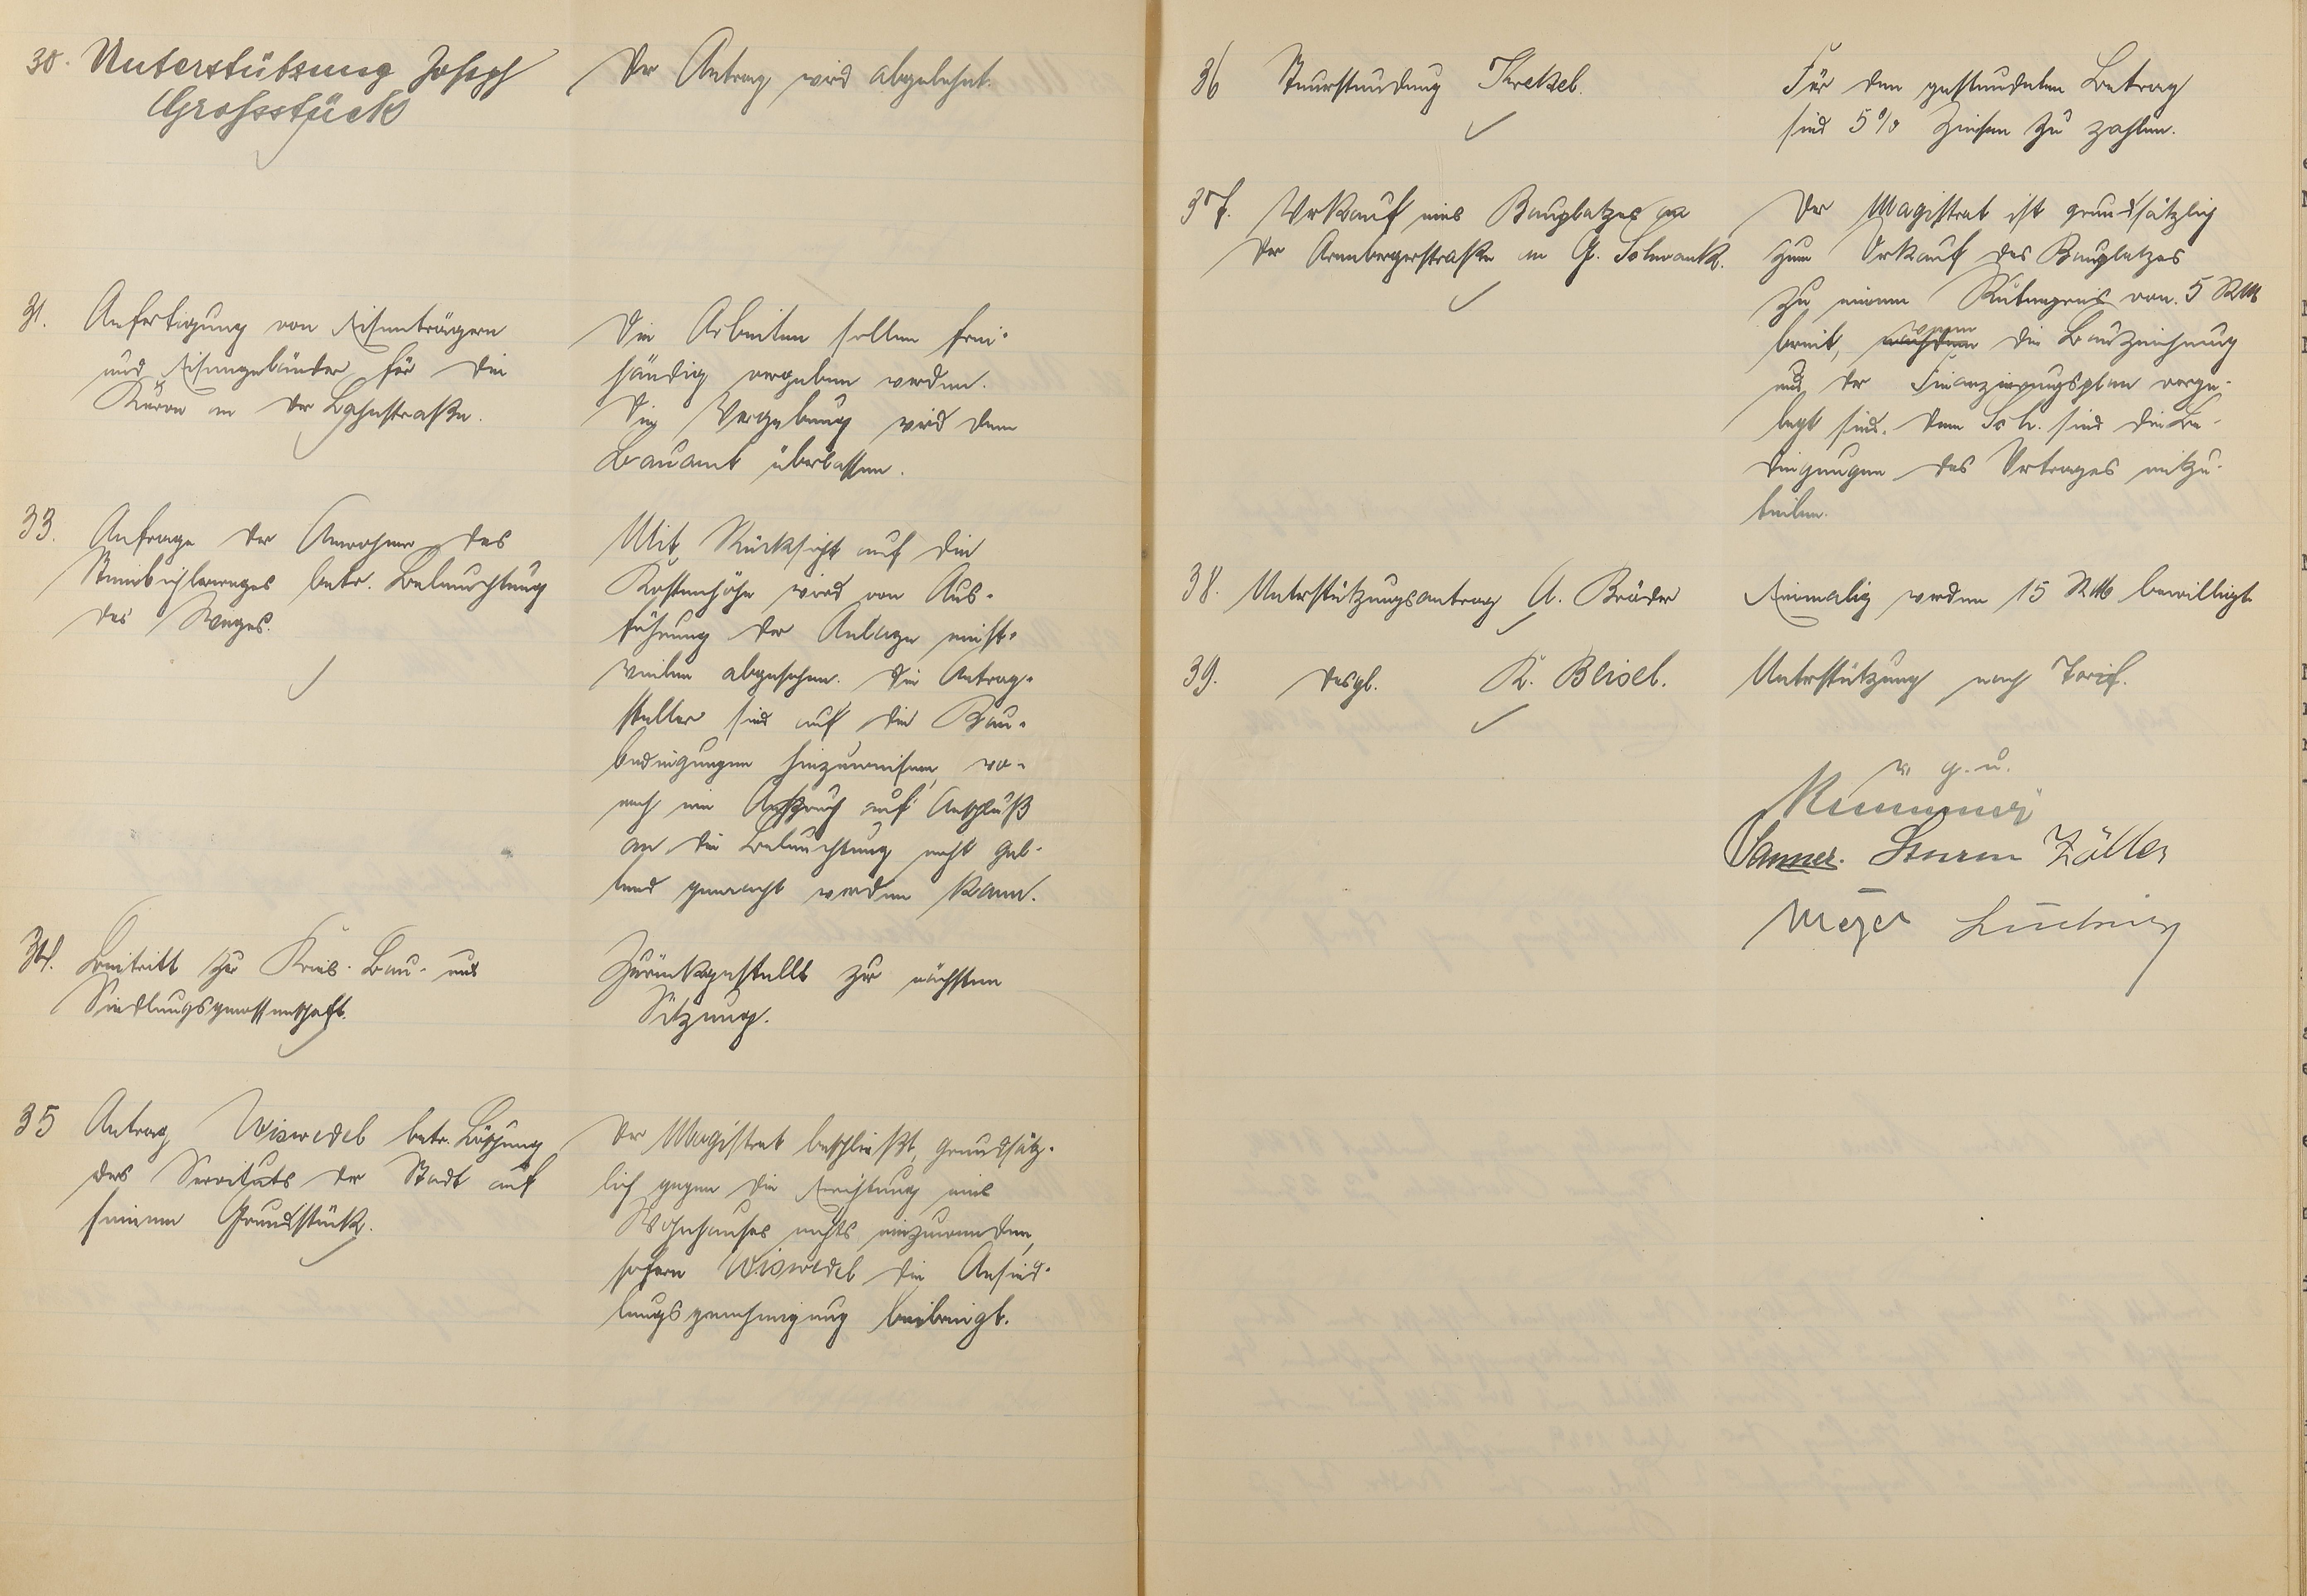 30. Unterstützung Joseph
Grossstück
Der Antrag wird abgelehnt.
31. Anfertigung von Eisenträgern
und Eisengeländer für die
an der Bahnstraße.
Die Arbeiten sollen frei-
händig vergeben werden.
Die Vergebung wird dem
Bauamt überlassen.
33. Anfrage der Anwohner des
betr. Beleuchtung
des Weges.
Mit Rücksicht auf die
Kostenhöhe wird von Aus-
führung der Anlage einst-
weilen abgesehen. Die Antrag-
steller sind auf die Bau-
bedingungen hinzuweisen, wo-
nach ein Anspruch auf Anschluß
an die Beleuchtung nicht gel-
tend gemacht werden kann.
34. Beitritt zur Kreis-Bau- und
Siedlungsgenossenschaft.
Zurückgestellt zur nächsten
Sitzung.
35 Antrag Wiswedel betr. Löschung
des Servituts der Stadt auf
seinem Grundstück.
Der Magistrat beschließt, grundsätz-
lich gegen die Errichtung eines
Wohnhauses nichts einzuwenden,
sofern Wiswedel die Ansied-
lungsgenehmigung beibringt.
36 Steuerstundung Krekel.
Für den gestundeten Betrag
sind 5% Zinsen zu zahlen.
37. Verkauf eines Bauplatzes an
der Arnsbergerstraße an G. Schwank.
Der Magistrat ist grundsätzlich
zum Verkauf des Bauplatzes
zu einem Rutenpreis von 5 RM
bereit, nachdem wenn die Bauzeichnung
und der Finanzierungsplan vorge-
legt sind. Dem Sch. sind die Be-
dingungen des Vertrages mitzu-
teilen.
38. Unterstützungsantrag A. Bräder
Einmalig werden 15 RM bewilligt
39. desgl. K. Beisel.
Unterstützung nach Tarif.
v. g. u.
Sanner. Sturm Zöller
Meyer Ludwig